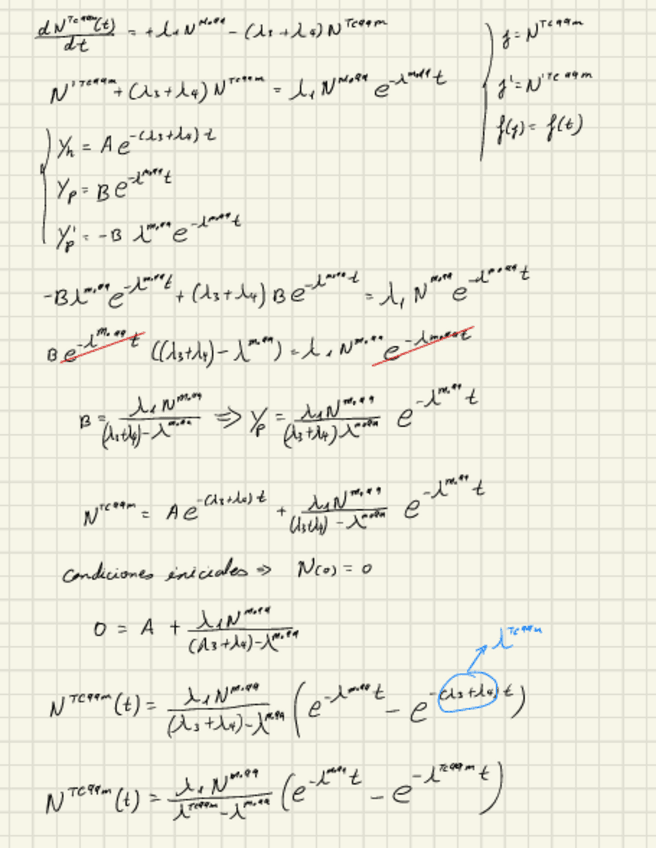 dN^{Tc99m}(t)/dt = +λ₁N^{Mo99} - (λ₃+λ₄)N^{Tc99m}
N'^{Tc99m} + (λ₃+λ₄)N^{Tc99m} = λ₁N^{Mo99} e^{-λ^{Mo99}t}
y = N^{Tc99m}
y' = N'^{Tc99m}
f(y) = f(t)
Yₕ = A e^{-(λ₃+λ₄)t}
Yₚ = B e^{-λ^{Mo99}t}
Yₚ' = -B λ^{Mo99} e^{-λ^{Mo99}t}
-Bλ^{Mo99} e^{-λ^{Mo99}t} + (λ₃+λ₄) B e^{-λ^{Mo99}t} = λ₁ N^{Mo99} e^{-λ^{Mo99}t}
B e^{-λ^{Mo99}t} ((λ₃+λ₄) - λ^{Mo99}) = λ₁ N^{Mo99} e^{-λ^{Mo99}t}
B = λ₁N^{Mo99}/((λ₃+λ₄)-λ^{Mo99}) ⇒ Yₚ = λ₁N^{Mo99}/((λ₃+λ₄)λ^{Mo99}) e^{-λ^{Mo99}t}
N^{Tc99m} = A e^{-(λ₃+λ₄)t} + λ₁N^{Mo99}/((λ₃+λ₄)-λ^{Mo99}) e^{-λ^{Mo99}t}
Condiciones iniciales ⇒ N(0) = 0
0 = A + λ₁N^{Mo99}/((λ₃+λ₄)-λ^{Mo99})
λ^{Tc99m}
N^{Tc99m}(t) = λ₁N^{Mo99}/((λ₃+λ₄)-λ^{Mo99}) (e^{-λ^{Mo99}t} - e^{-(λ₃+λ₄)t})
N^{Tc99m}(t) = λ₁N^{Mo99}/(λ^{Tc99m}-λ^{Mo99}) (e^{-λ^{Mo99}t} - e^{-λ^{Tc99m}t})